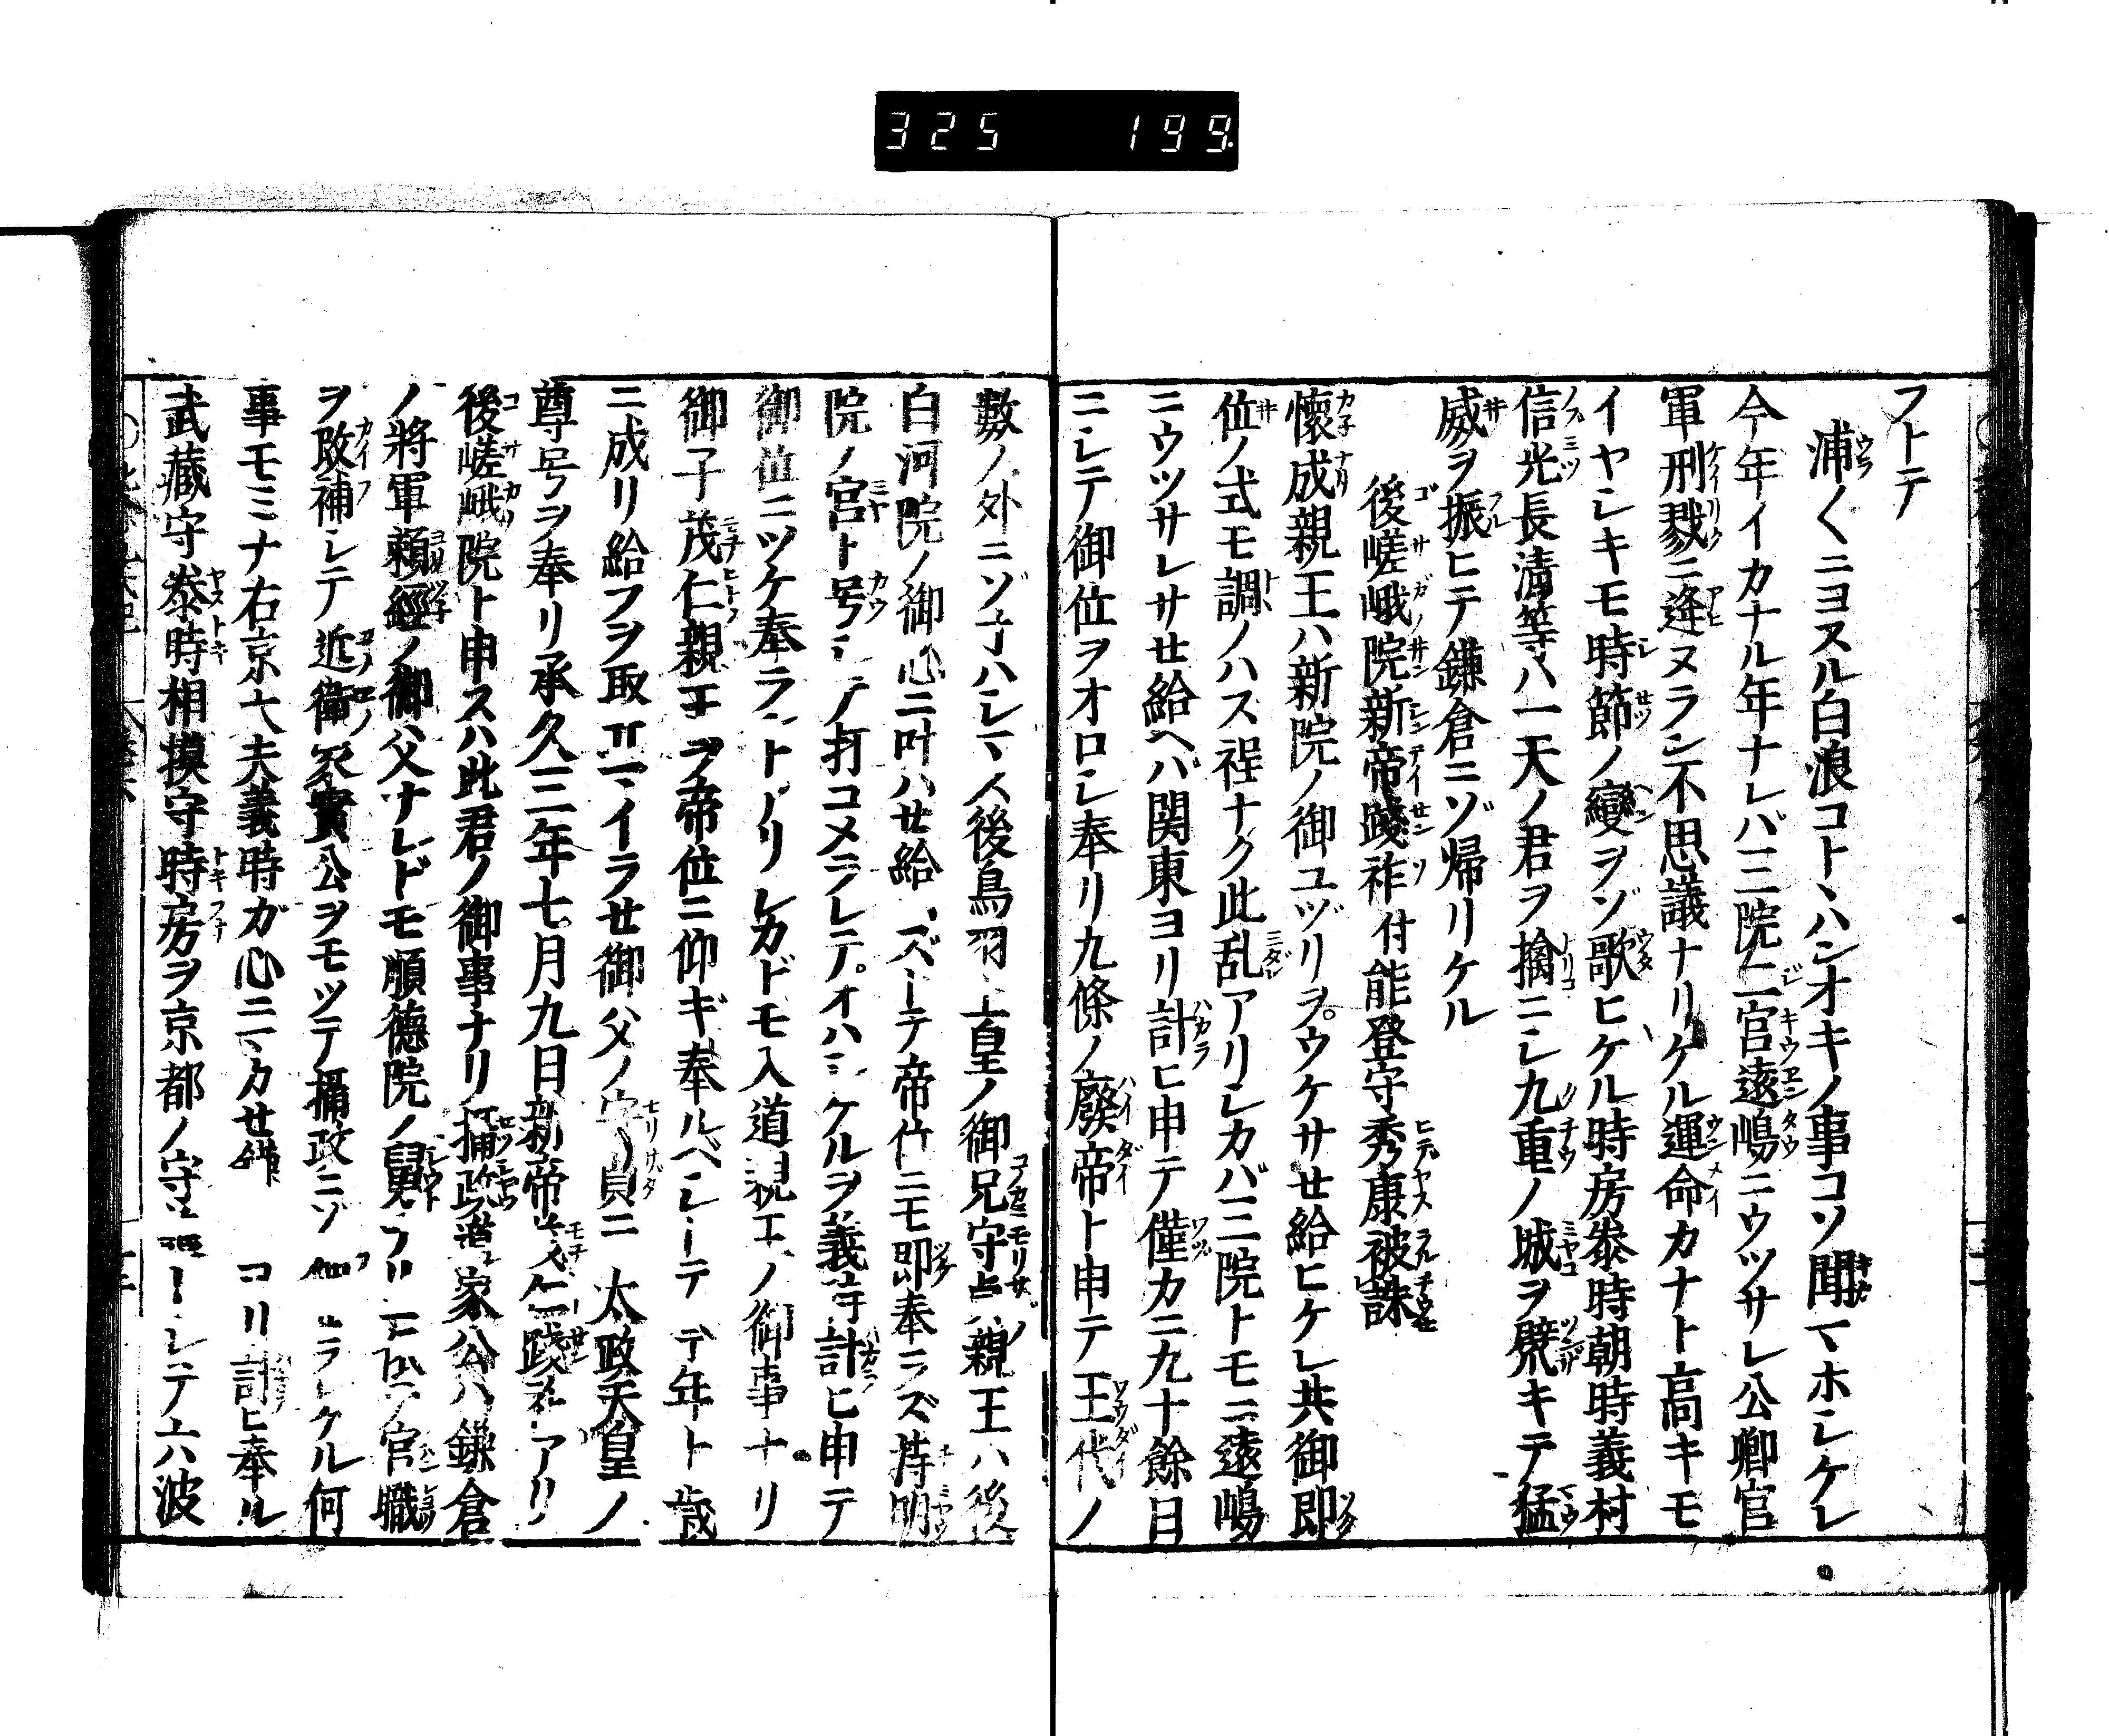 325 199
フトテ
浦〱ニヨスル白浪コトヽハンオキノ事コソ聞マホシケレ
今年イカナル年ナレバ三院二官遠嶋ニウツサレ公卿官
軍刑戮ニ逢ヌラン不思議ナリケル運命カナト高キモ
イヤシキモ時節ノ變ヲゾ歌ヒケル時房泰時朝時義村
信光長清等ハ一天ノ君ヲ擒ニシ九重ノ城ヲ甓キテ猛
威ヲ振ヒテ鎌倉ニゾ帰リケル
後嵯峨院新帝踐祚付能登守秀康被誅
懐成親王ハ新院ノ御ユヅリヲウケサセ給ヒケレ共御即
位ノ式モ調ノハス程ナク此乱アリシカバ三院トモニ遠嶋
ニウツサレサセ給ヘバ関東ヨリ計ヒ申テ僅カニ九十餘日
ニシテ御位ヲオロシ奉リ九條ノ廢帝ト申テ王代ノ
數ノ外ニゾオハシマス後鳥羽上皇ノ御兄守貞親王ハ後
白河院ノ御心ニ叶ハセ給ハズシテ帝位ニモ即奉ラズ持明
院ノ宮ト号シテ打コメラレテオハシケルヲ義時計ヒ申テ
御位ニツケ奉ラントナリシカドモ入道親王ノ御事ナリ
御子茂仁親王ヲ帝位ニ仰ギ奉ルベシトテ年十歳
ニ成リ給フヲ取立マイラセ御父ノ守貞ニ太政天皇ノ
尊号ヲ奉リ承久三年七月九日新帝茂仁踐祚アリ
後嵯峨院ト申スハ此君ノ御事ナリ攝政道家公ハ鎌倉
ノ將軍頼經ノ御父ナレドモ順徳院ノ舅ナリ官職
ヲ改補シテ近衞家實公ヲモツテ攝政ニゾラレケル何
事モミナ右京大夫義時ガ心ニマカセ鎌ヨリ計ヒ奉ル
武藏守泰時相摸守時房ヲ京都ノ守護トシテ六波